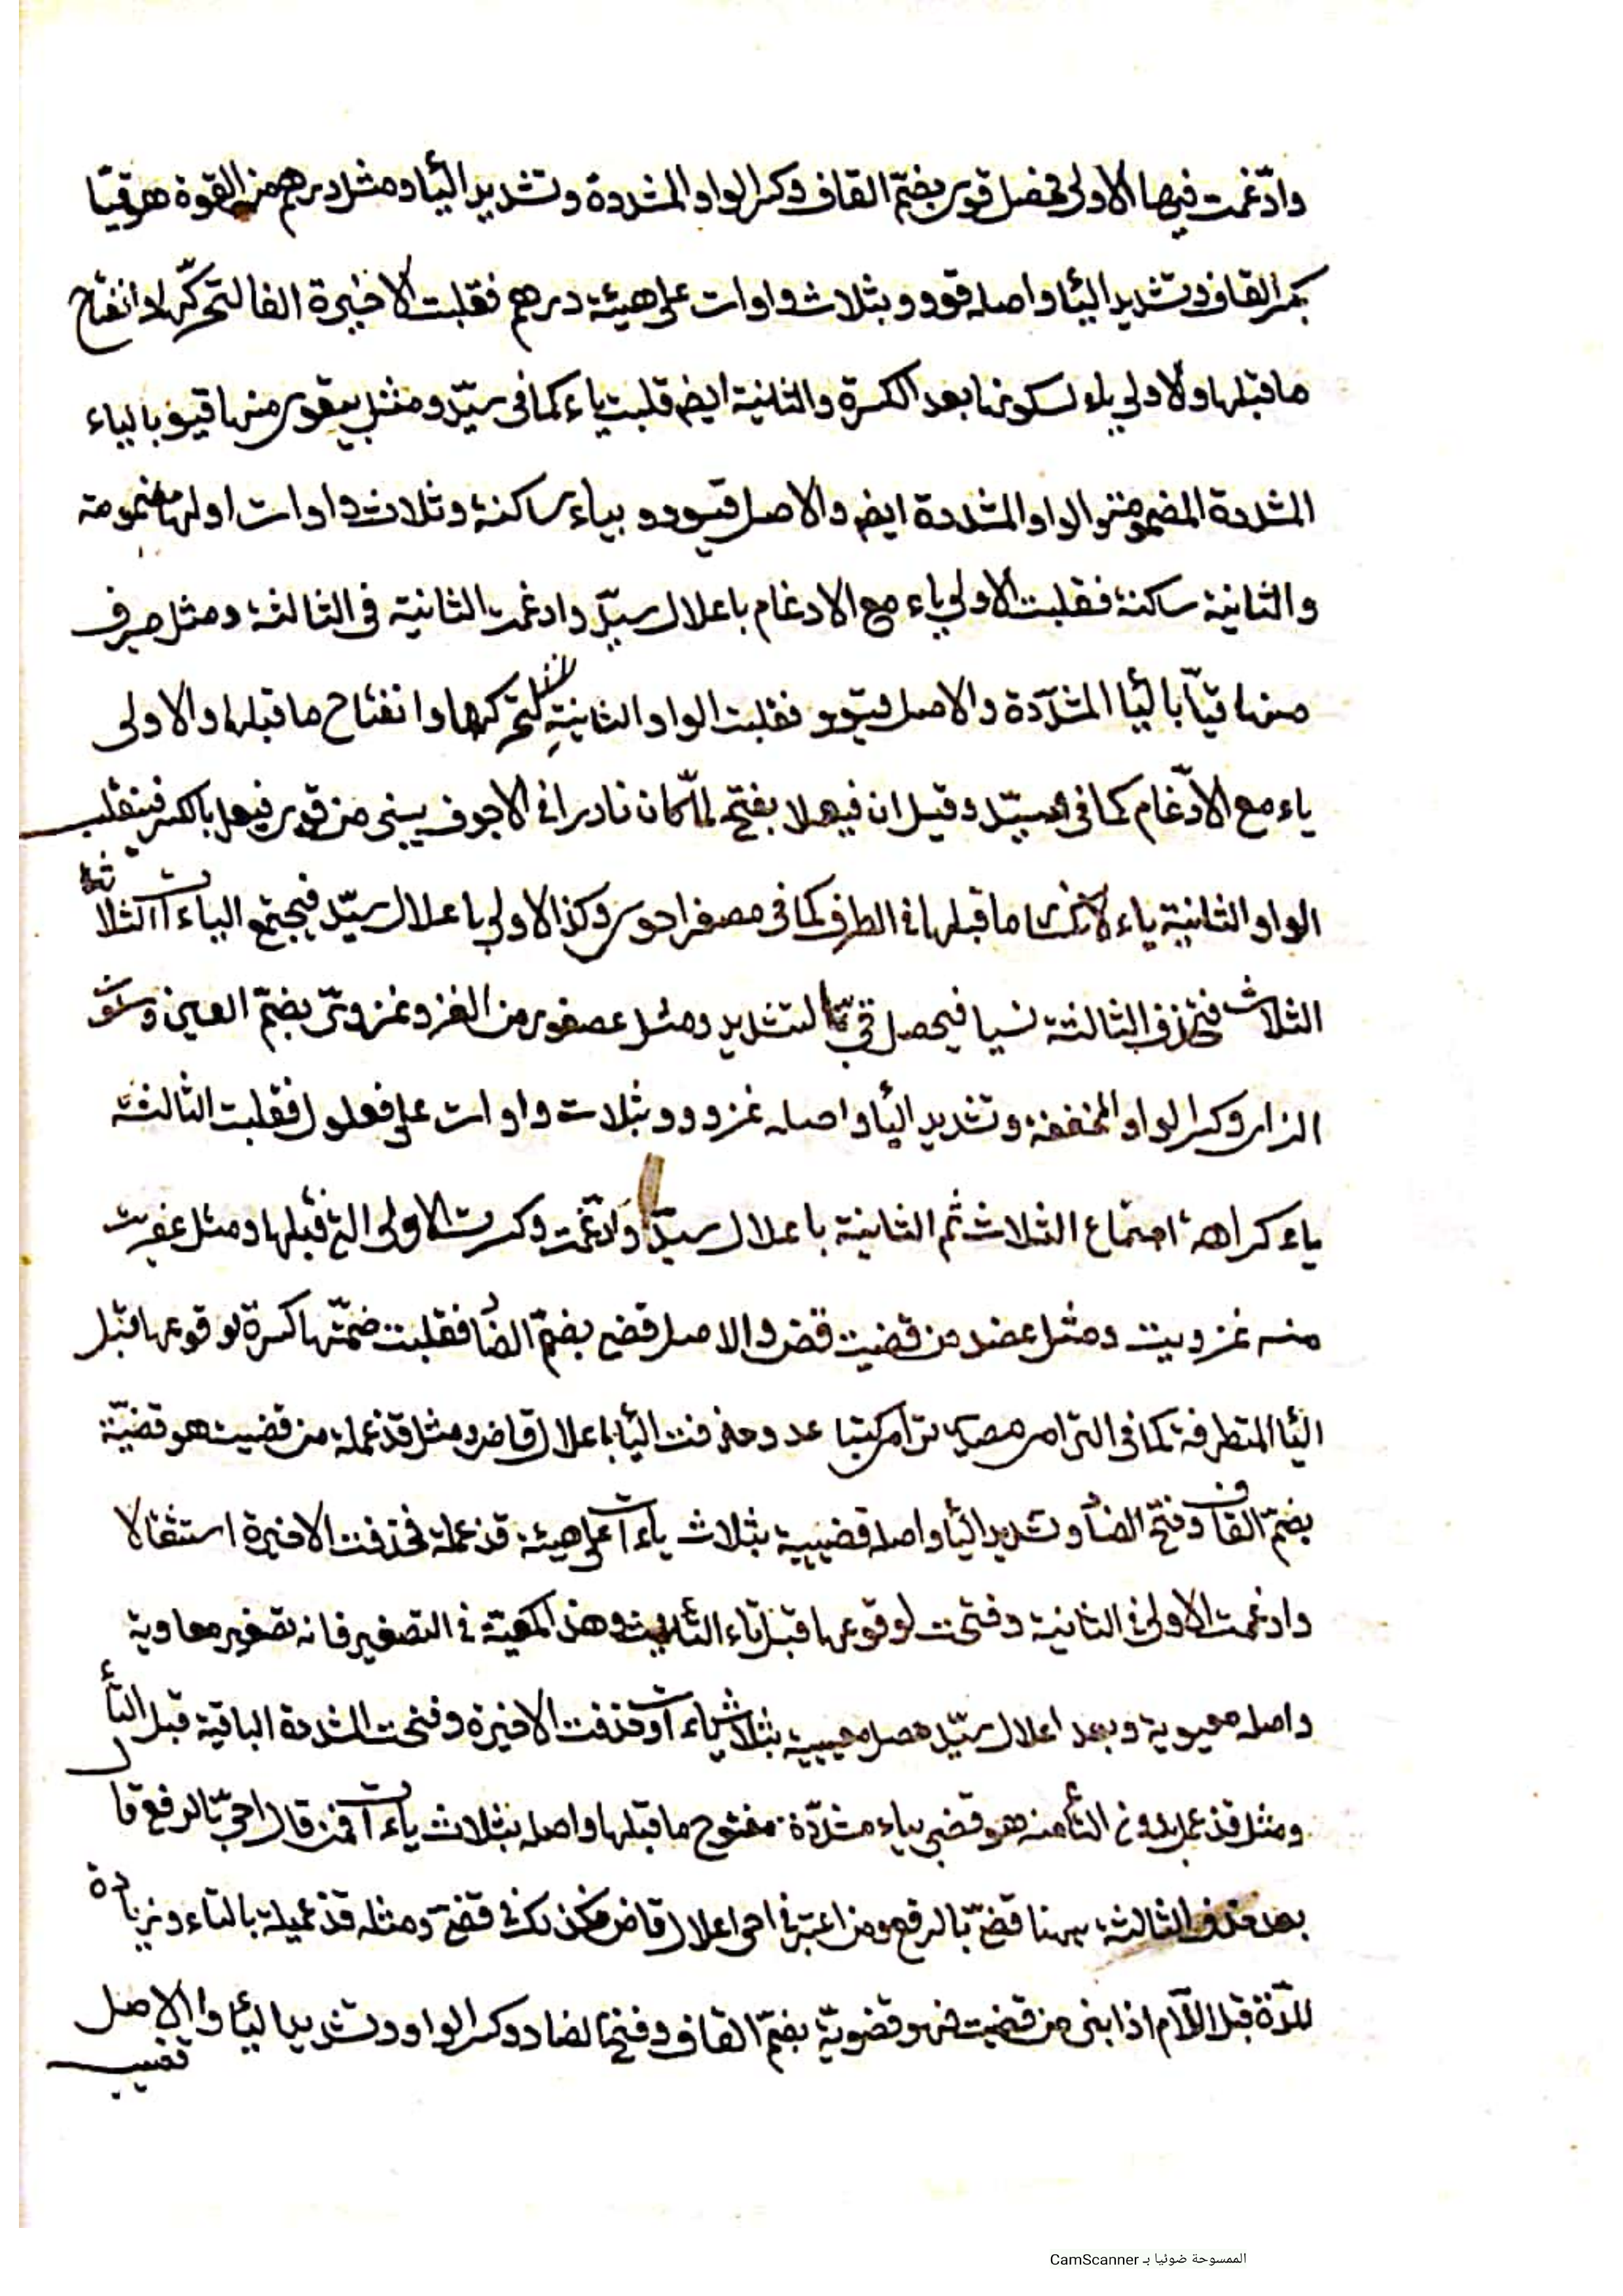 وادّغمت فيها الاولى فحصل قوى بضمّ القاف وكسر الواو المشددة وتشديد اليأ ومثل درهم من القوة هو قيّا
بكسر القاف وتشديد اليأ واصله قووو بثلاث واوات على هيئة درهم فقلبت الاخيرة الفا لتحركّها وانفتاح
ما قبلها والاولى ياء لسكونها بعد الكسرة والثانية ايض قلبت ياء كما فى سيّد ومثل بيقور منها قيو بالياء
المشددة المضمومة والواو المشددة ايض والاصل قيووو بياء ساكنة وثلاث واوات اولها مضمومة
والثانية ساكنة فقلبت الاولى ياء مع الادغام باعلال سيّد وادغمت الثانية فى الثالثة ومثل صيرف
منها قيّا باليأ المشدّدة والاصل قيوو فقلبت الواو الثانية لتحركها وانفتاح ما قبلها والاولى
ياء مع الادّغام كما فى سيّد وقيل ان فيعلا بفتح لمّا كان نادرا فى الاجوف يبنى من قوى فيعل بالكسر فينقلب
الواو الثانية ياء لانكسار ما قبلها فى الطرف كما فى مصغر احوى وكذا الاولى باعلال سيّد فيجتمع الياءات الثلاث
الثلاث فتحذف الثالثة نسيا فيحصل قىّ بالتشديد ومثل عصفور من الغزو غزوىّ بضمّ الغين وسكون
الزاى وكسر الواو المخففة وتشديد اليأ واصله غزووو بثلاث واوات على فعلول فقلبت الثالثة
ياء كراهة اجتماع الثلاث ثم الثانية باعلال سيّد وادّغمت وكسرت الاولى التى قبلها ومثل عفريت
منه غزويت ومثل عضد من قضيت قض والاصل قضى بضمّ الضاد فقلبت ضمّتها كسرة لوقوعها قبل
اليأ المتطرفة كما فى الترامى مصدر ترامى كتباعد وحذفت اليأ باعلال قاض ومثل قذعملة من قضيت هو قضيّة
بضمّ القاف وفتح الضاد وتشديد اليأ واصله قضييية بثلاث ياءات على هيئة قذعملة فحذفت الاخيرة استثقالا
وادغمت الاولى فى الثانية وفتحت لوقوعها قبل تاء التأنيث وهذا كمعيّة فى التصغير فانه تصغير معاوية
واصله معيوية وبعد اعلال سيّد حصل معييية بثلاث ياءات وحذفت الاخيرة وفتحت المشددة الباقية قبل التأ
ومثل قذعمل بدون التأ منه هو قضى بياء مشدّدة مفتوح ما قبلها واصله بثلاث ياءات فمن قال احىّ بالرفع قال
بعد حذف الثالثة ههنا قضىّ بالرفع ومن اعتبر فى احى اعلال قاض فكذلك فى قضى ومثله قذعميلة بالتاء وزيادة
للمدّة قبل اللّام اذا بنى من قضيت فهو قضويّة بضمّ القاف وفتح الضاد وكسر الواو وتشديد اليأ والاصل
الممسوحة ضوئيا بـ CamScanner